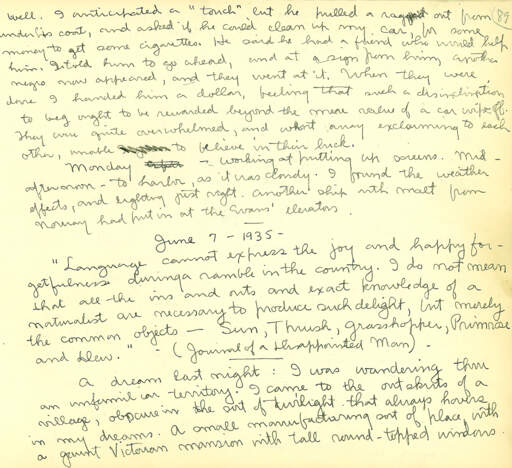 well. I anticipated a "touch" but he pulled a rag out from 89
under his coat, and asked if he could clean up my car, for some
money to get some cigarettes. He said he had a friend who would help
him. I told him to go ahead, and at a sign from him, another
negro now appeared, and they went at it. When they were
done I handed him a dollar, feeling that such a disinclination
to beg ought to be rewarded beyond the mere value of a car wipe off.
They were quite overwhelmed, and went away exclaiming to each
other, unable to believe in their luck.
Monday - working at putting up screens. Mid-
afternoon - to harbor, as it was cloudy. I found the weather
effects, and lighting just right. Another ship with malt from
Norway had put in at the Evans' elevators.
June 7 - 1935 -
"Language cannot express the joy and happy for-
getfulness during a ramble in the country. I do not mean
that all the ins and outs and exact knowledge of a
naturalist are necessary to produce such delight, but merely
the common objects — Sun, Thrush, grasshopper, Primrose
and dew." - (Journal of a Disappointed Man) -
A dream last night: I was wandering thru
an unfamiliar territory. I came to the outskirts of a
village, obscure in the sort of twilight that always hovers
in my dreams. A small manufacturing sort of place, with
a gaunt Victorian mansion with tall round-topped windows.